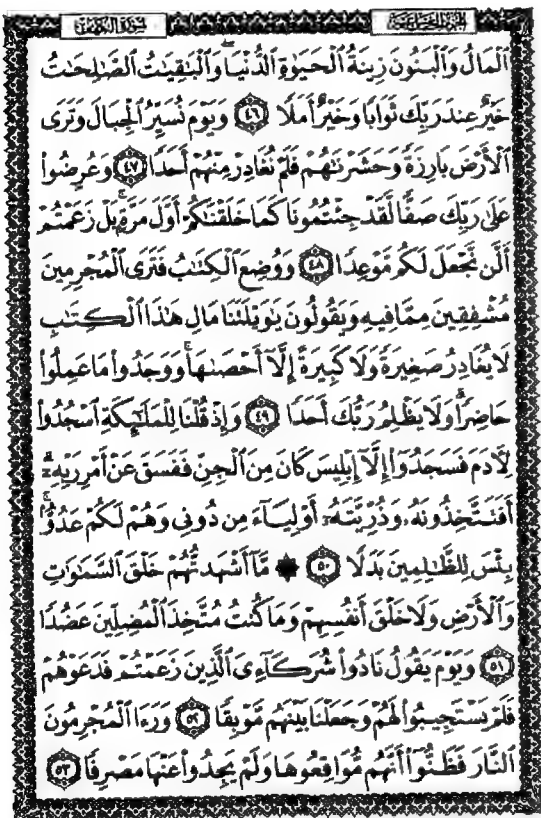 الجزء الخامس عشر
سورة الكهف
ٱلْمَالُ وَٱلْبَنُونَ زِينَةُ ٱلْحَيَوٰةِ ٱلدُّنْيَا ۖ وَٱلْبَٰقِيَٰتُ ٱلصَّٰلِحَٰتُ
خَيْرٌ عِندَ رَبِّكَ ثَوَابًا وَخَيْرٌ أَمَلًا ٤٦ وَيَوْمَ نُسَيِّرُ ٱلْجِبَالَ وَتَرَى
ٱلْأَرْضَ بَارِزَةً وَحَشَرْنَٰهُمْ فَلَمْ نُغَادِرْ مِنْهُمْ أَحَدًا ٤٧ وَعُرِضُوا۟
عَلَىٰ رَبِّكَ صَفًّا لَّقَدْ جِئْتُمُونَا كَمَا خَلَقْنَٰكُمْ أَوَّلَ مَرَّةٍۭ ۚ بَلْ زَعَمْتُمْ
أَلَّن نَّجْعَلَ لَكُم مَّوْعِدًا ٤٨ وَوُضِعَ ٱلْكِتَٰبُ فَتَرَى ٱلْمُجْرِمِينَ
مُشْفِقِينَ مِمَّا فِيهِ وَيَقُولُونَ يَٰوَيْلَتَنَا مَالِ هَٰذَا ٱلْكِتَٰبِ
لَا يُغَادِرُ صَغِيرَةً وَلَا كَبِيرَةً إِلَّآ أَحْصَىٰهَا ۚ وَوَجَدُوا۟ مَا عَمِلُوا۟
حَاضِرًا ۗ وَلَا يَظْلِمُ رَبُّكَ أَحَدًا ٤٩ وَإِذْ قُلْنَا لِلْمَلَٰٓئِكَةِ ٱسْجُدُوا۟
لِءَادَمَ فَسَجَدُوٓا۟ إِلَّآ إِبْلِيسَ كَانَ مِنَ ٱلْجِنِّ فَفَسَقَ عَنْ أَمْرِ رَبِّهِۦٓ ۗ
أَفَتَتَّخِذُونَهُۥ وَذُرِّيَّتَهُۥٓ أَوْلِيَآءَ مِن دُونِى وَهُمْ لَكُمْ عَدُوٌّۢ ۚ
بِئْسَ لِلظَّٰلِمِينَ بَدَلًا ٥٠ ۞ مَّآ أَشْهَدتُّهُمْ خَلْقَ ٱلسَّمَٰوَٰتِ
وَٱلْأَرْضِ وَلَا خَلْقَ أَنفُسِهِمْ وَمَا كُنتُ مُتَّخِذَ ٱلْمُضِلِّينَ عَضُدًا
٥١ وَيَوْمَ يَقُولُ نَادُوا۟ شُرَكَآءِىَ ٱلَّذِينَ زَعَمْتُمْ فَدَعَوْهُمْ
فَلَمْ يَسْتَجِيبُوا۟ لَهُمْ وَجَعَلْنَا بَيْنَهُم مَّوْبِقًا ٥٢ وَرَءَا ٱلْمُجْرِمُونَ
ٱلنَّارَ فَظَنُّوٓا۟ أَنَّهُم مُّوَاقِعُوهَا وَلَمْ يَجِدُوا۟ عَنْهَا مَصْرِفًا ٥٣